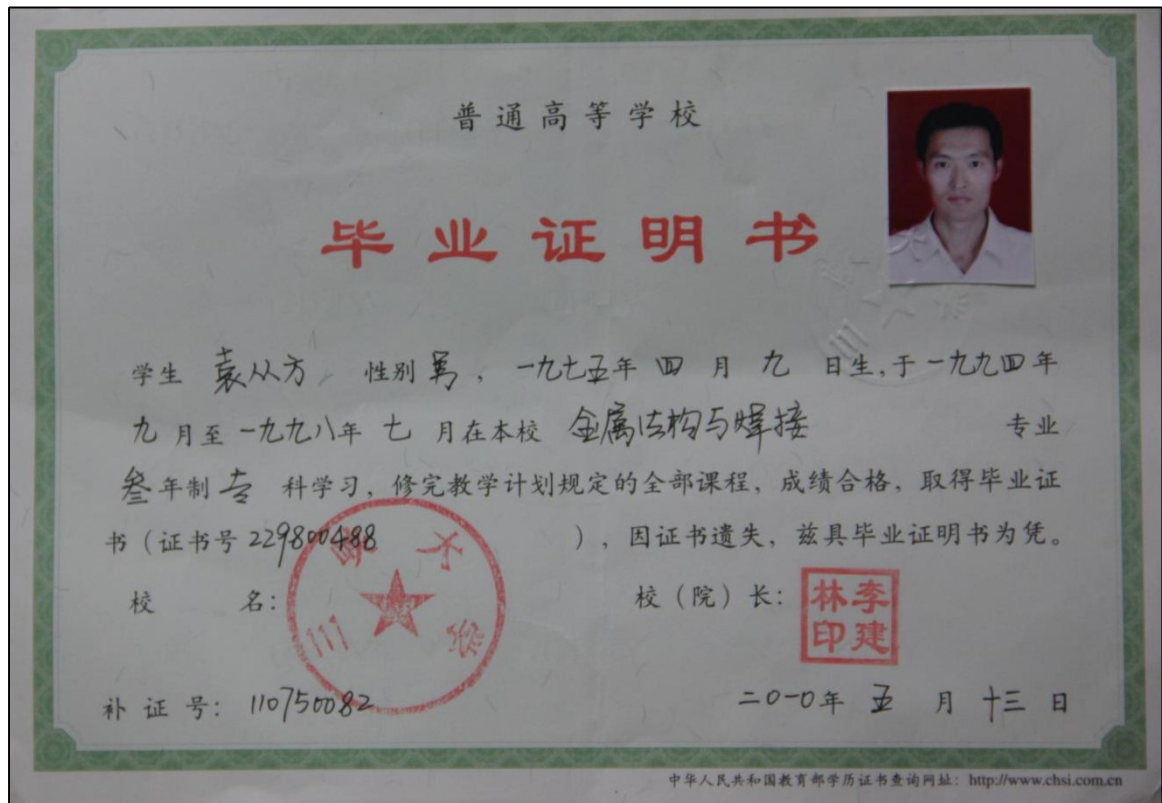 普通高等学校
毕业证明书
学生 袁从方 性别 男，一九七五年 四 月 九 日生,于一九九四年
九 月至一九九八年 七 月在本校 金属结构与焊接 专业
叁年制 专 科学习，修完教学计划规定的全部课程，成绩合格，取得毕业证
书（证书号 229800488 ），因证书遗失，兹具毕业证明书为凭。
校 名： 三峡大学 校（院）长： 李建林印
补 证 号： 110750082 二〇一〇年 五 月 十三 日
中华人民共和国教育部学历证书查询网址：http://www.chsi.com.cn